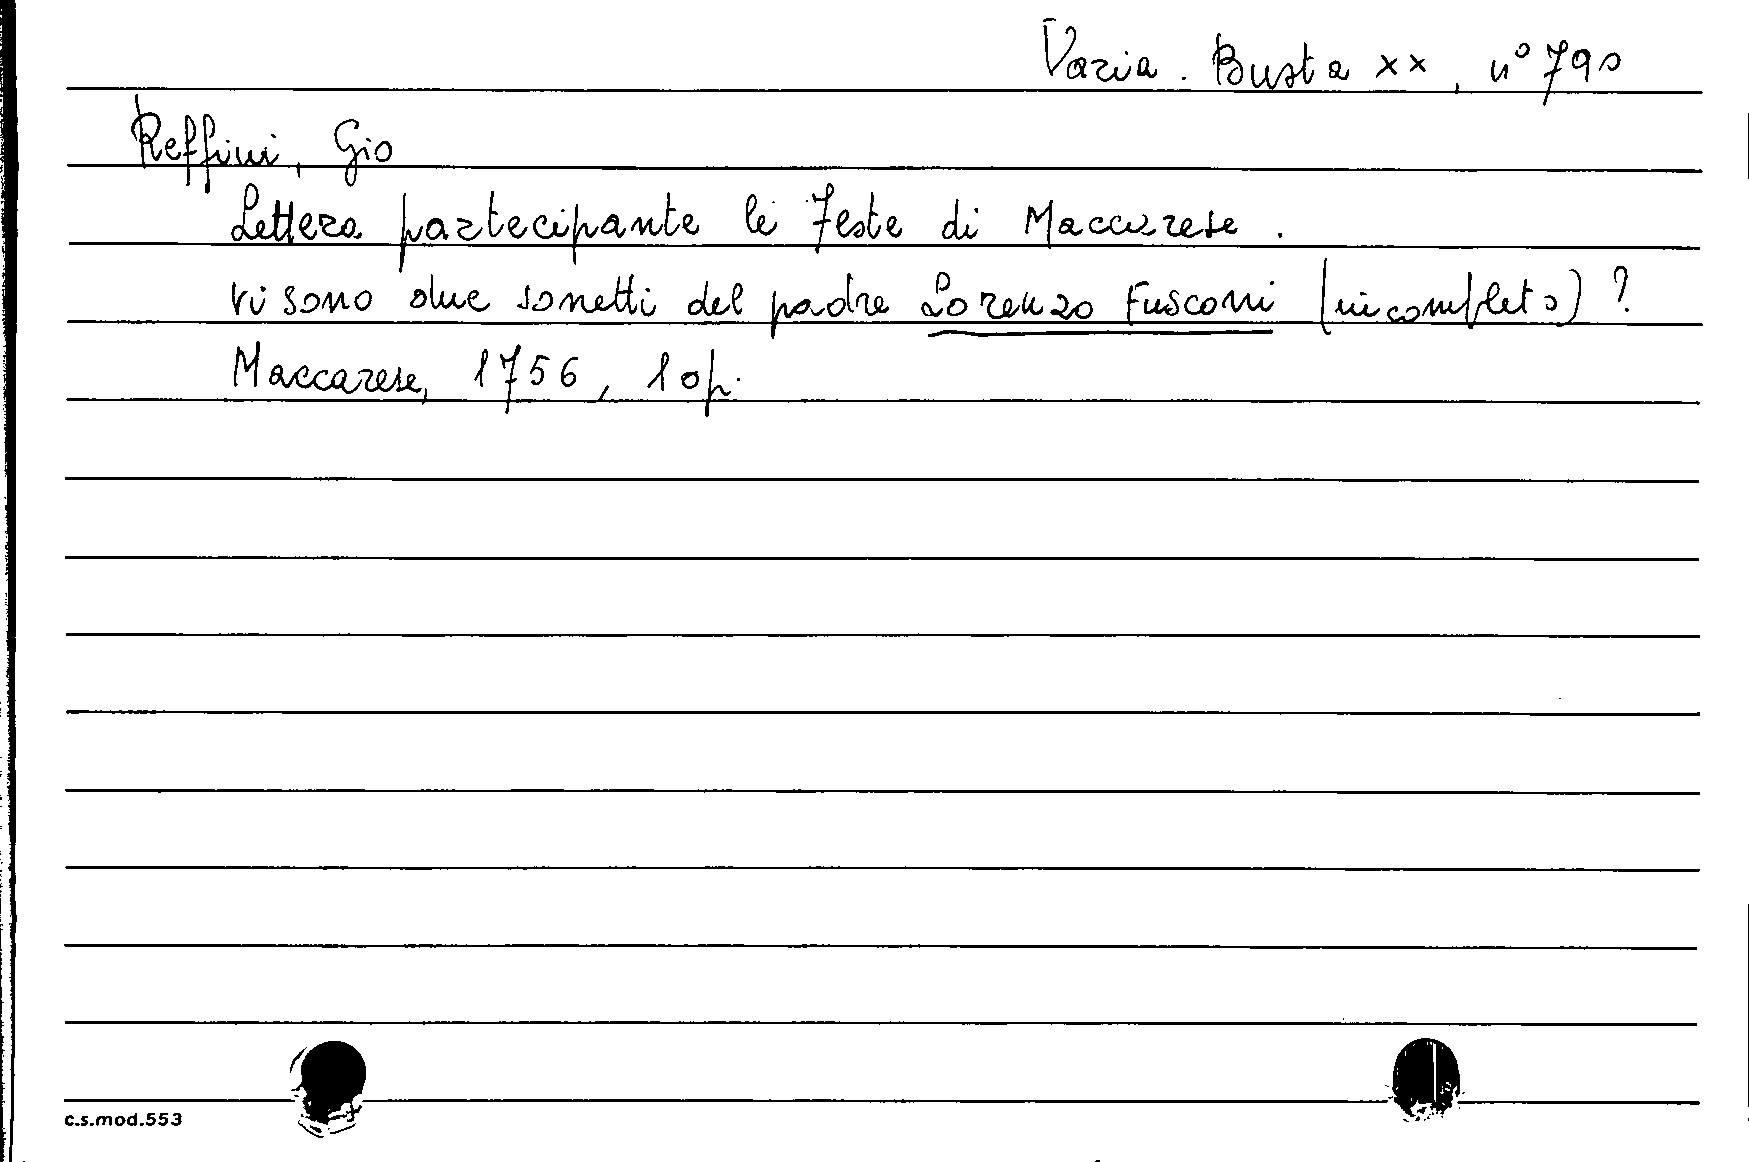 Varia. Busta XX, n° 790
Reffini, Gio
Lettera partecipante le Feste di Maccarese.
vi sono due sonetti del padre Lorenzo Fusconi (incompleto)?
Maccarese, 1756, 10 p.
c.s.mod.553